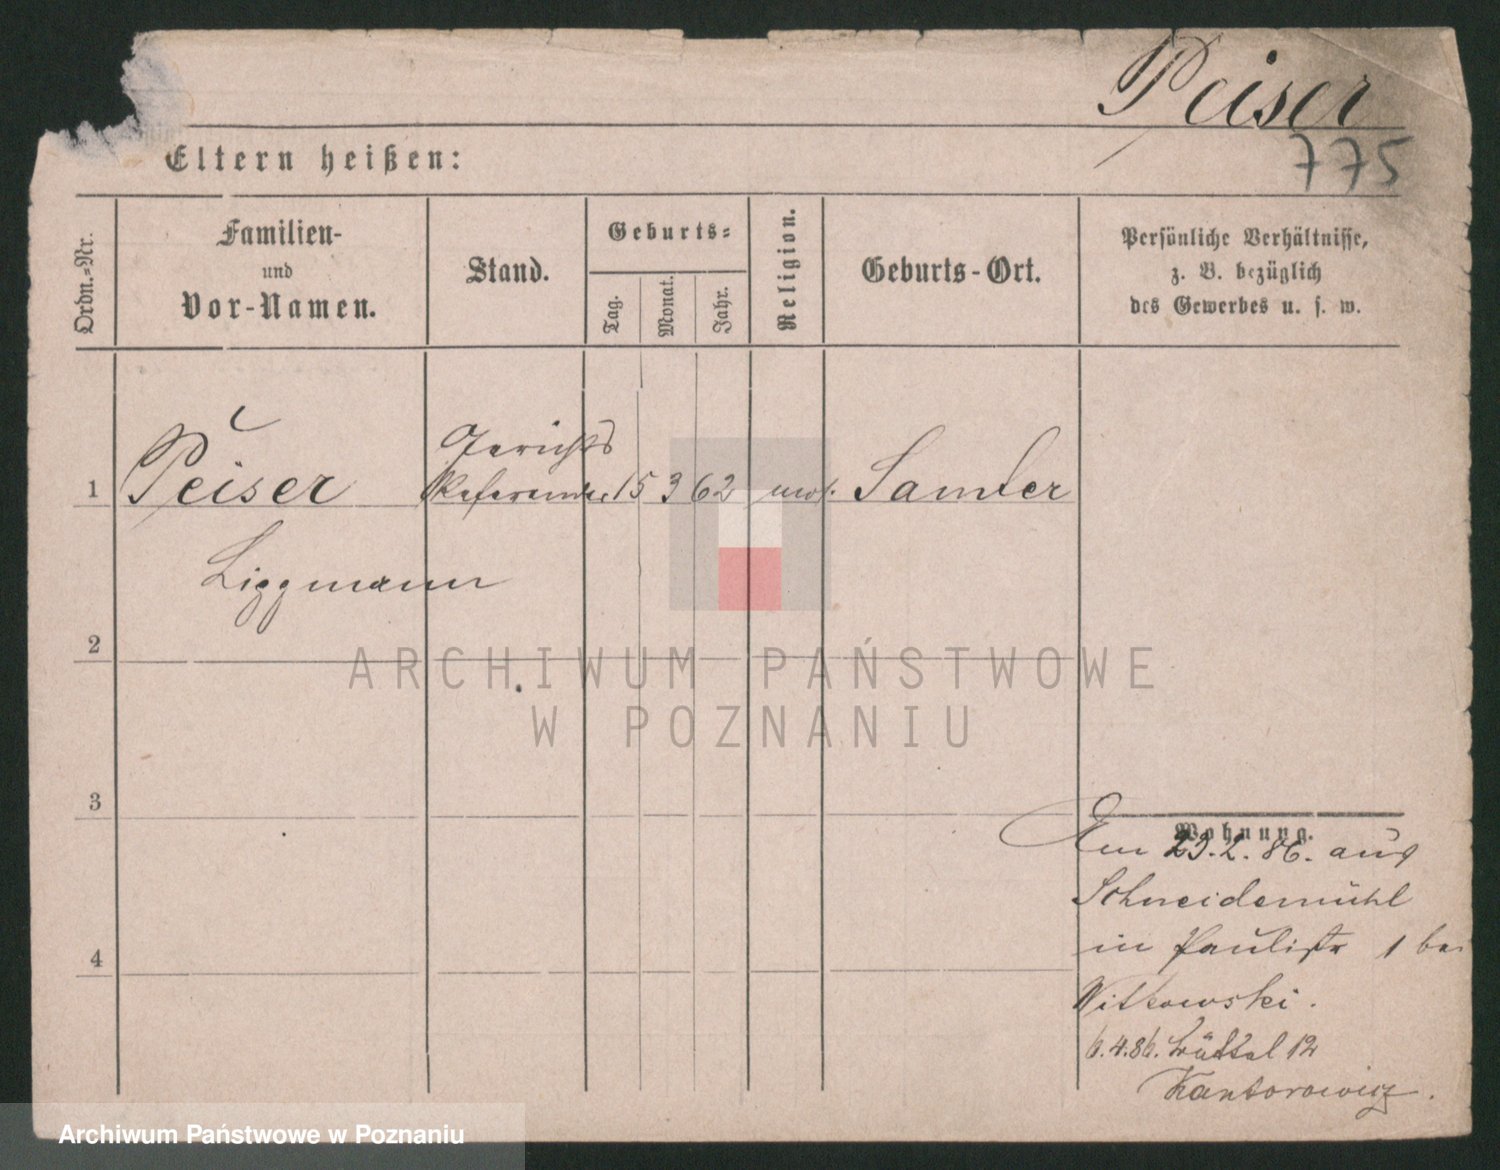 Peiser
775
Eltern heißen:
Ordn.-Nr.
Familien-
und
Vor-Namen.
Stand.
Geburts-
Tag.
Monat.
Jahr.
Religion.
Geburts-Ort.
Persönliche Verhältnisse,
z. B. bezüglich
des Gewerbes u. s. w.
Gerichts
1 Peiser Referendar 15 3 62 mos. Samter
Liggmann
2
ARCHIWUM PAŃSTWOWE
W POZNANIU
3
Wohnung.
23.2.86. aus
Schneidemühl
4
in Paulistr 1 bei
Witkowski.
6.4.86. 12
Kantorowicz.
Archiwum Państwowe w Poznaniu